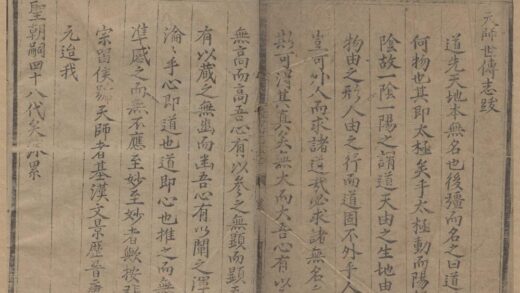 天師世傳志跋
道先天地本無名也後穪而名之曰道
何物也其即太極矣乎太極動而陽
陰故一陰一陽之謂道天由之生地由
物由之形人由之行而道固不外乎人
豈可外人而求諸道哉必求諸無名
斯可得其真矣無大而大吾心有以
無高而高吾心有以參之無顯而顯吾
有以藏之無幽而幽吾心有以闡之渾
淪〻乎心即道也道即心也推之而無
準感之而無不應至妙至妙者歟按
宗留侯號天師者基漢文景歷晉唐
元迨我
聖朝嗣四十八代矣 累